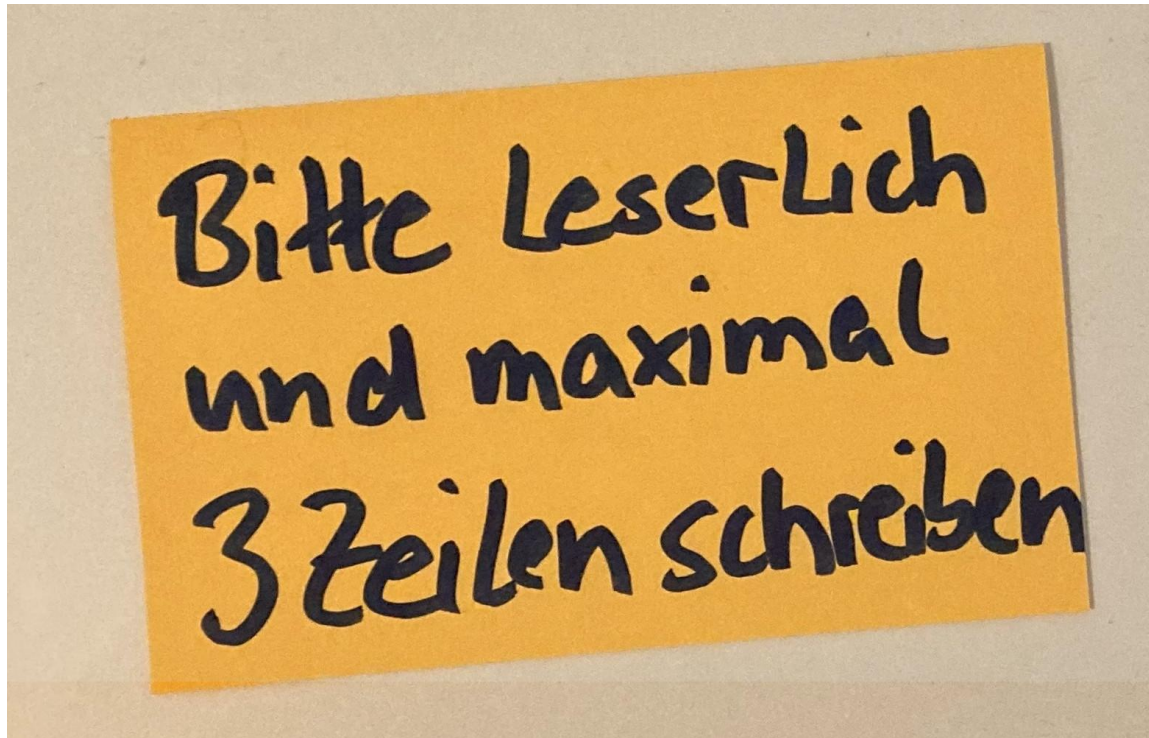 Bitte leserlich
und maximal
3 Zeilen schreiben